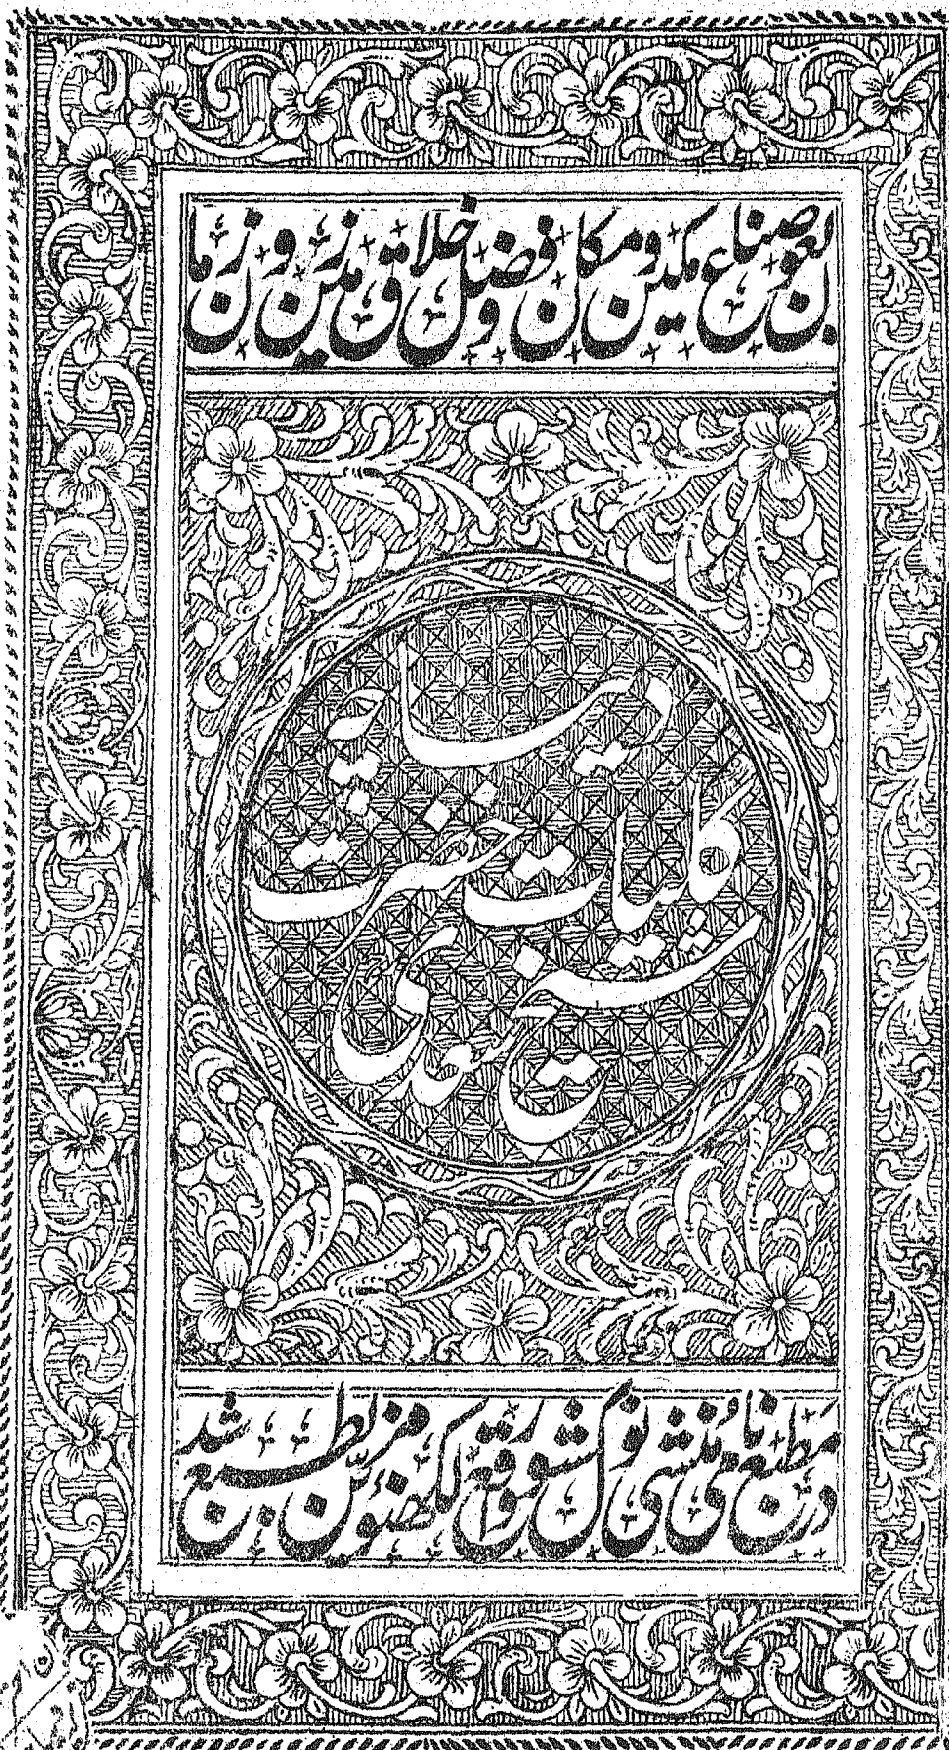 بعون صناع مکین و مکان و فضل خلاق زمین و زمان
دیباچه
کلیات حضرت
شیخ سعدی
در مطبع نامی منشی نولکشور واقع لکهنؤ مزین بطبع شد